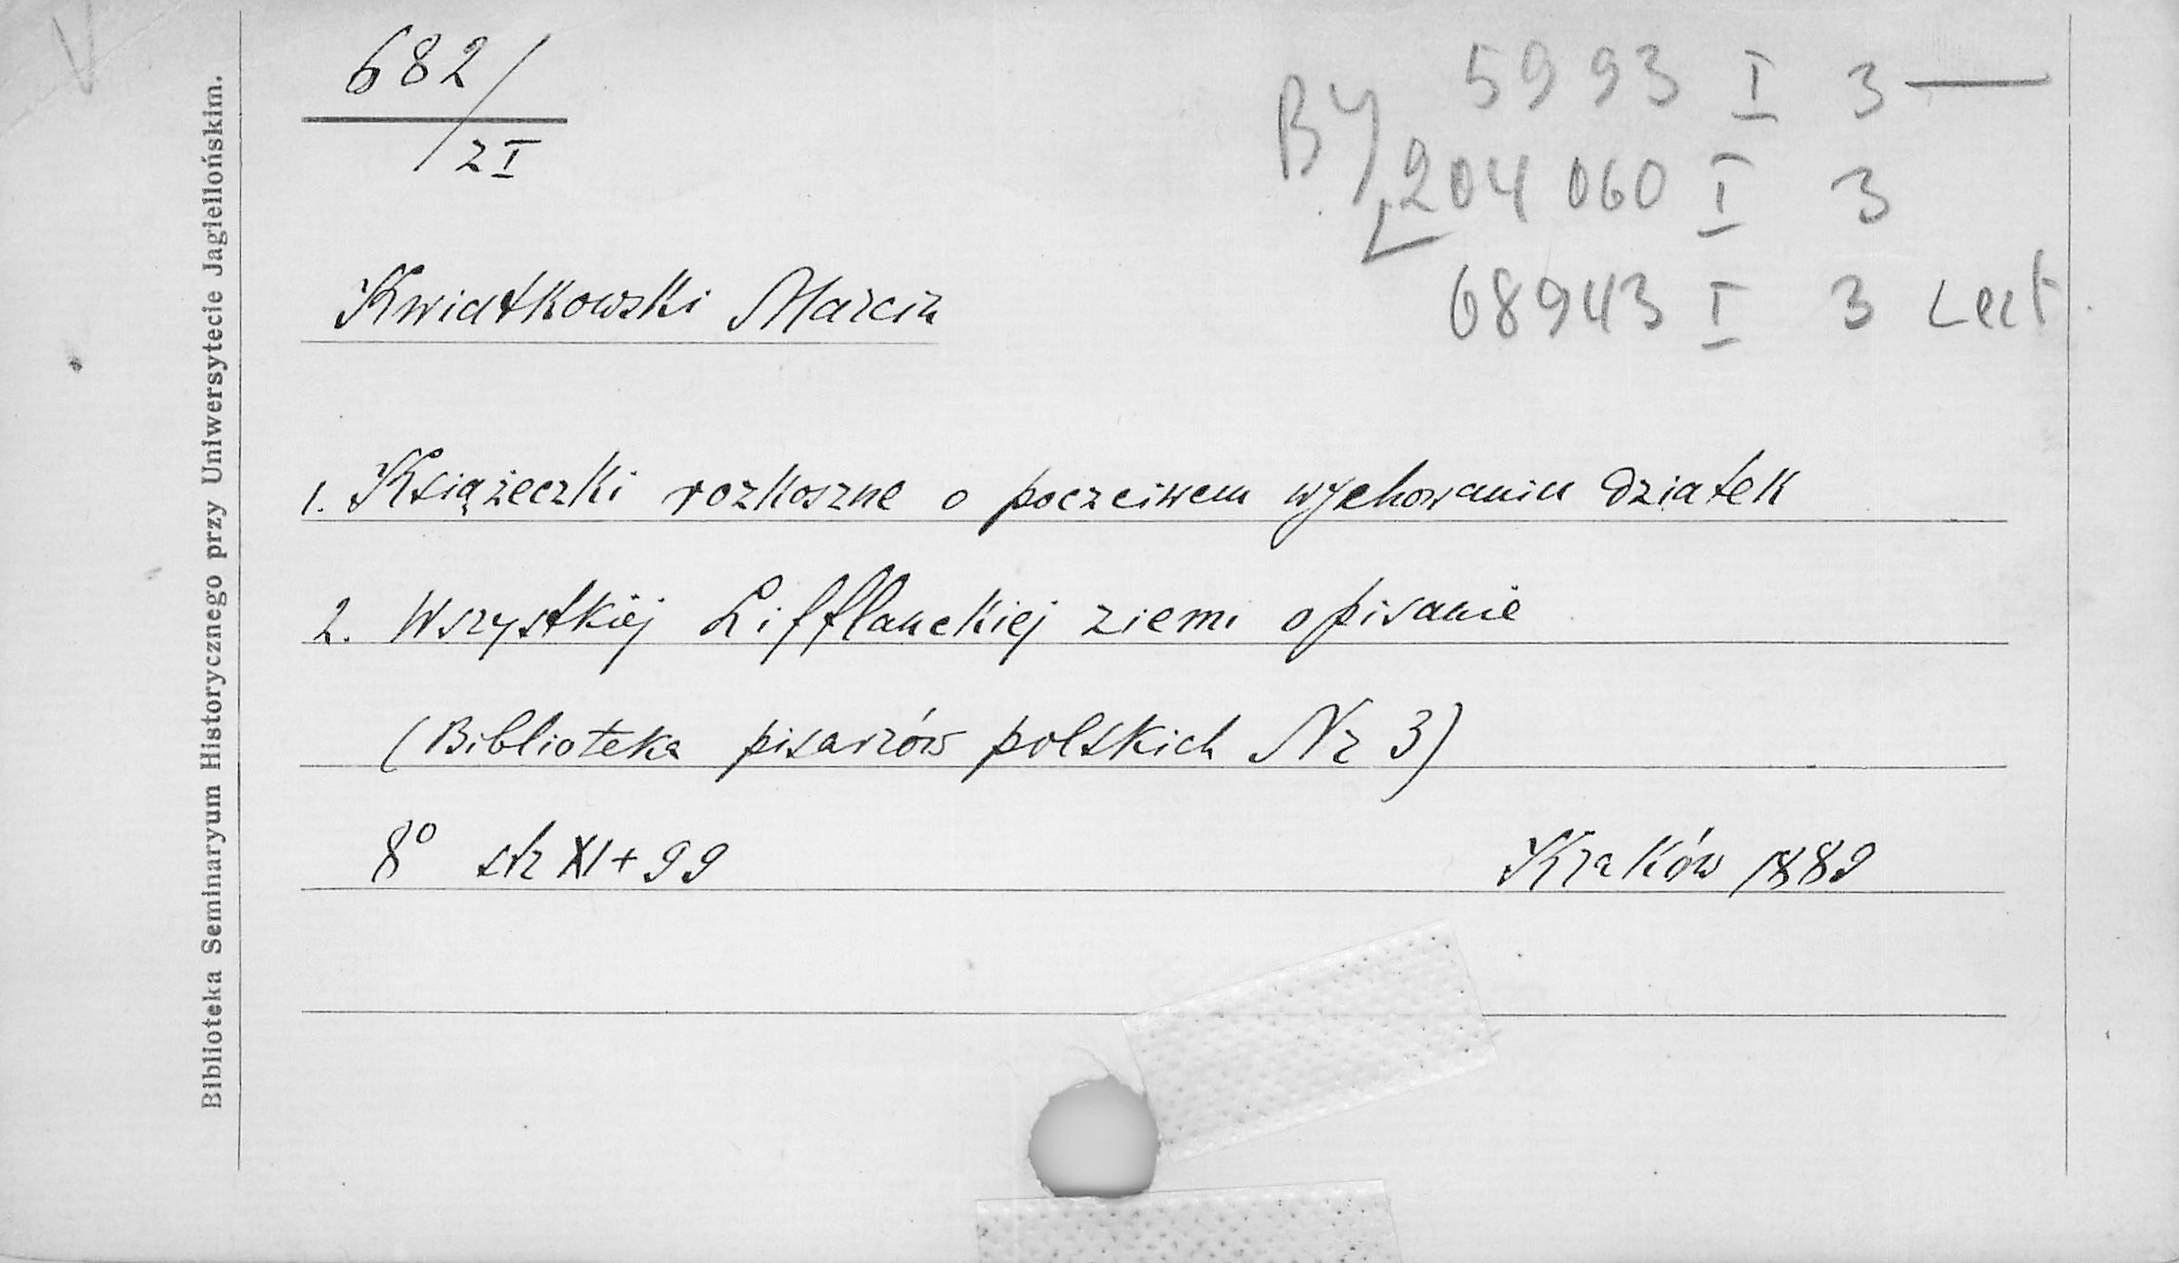 682/2I
BJ 5993 I 3 —
204 060 I 3
68943 I 3 Lect.
Kwiatkowski Marcin
1. Książeczki rozkoszne o poczciwem wychowaniu dziatek
2. Wszystkiej Lifflanckiej ziemi opisanie
(Biblioteka pisarzów polskich Nr 3)
8° str XI+99 Kraków 1889
Biblioteka Seminaryum Historycznego przy Uniwersytecie Jagiellońskim.